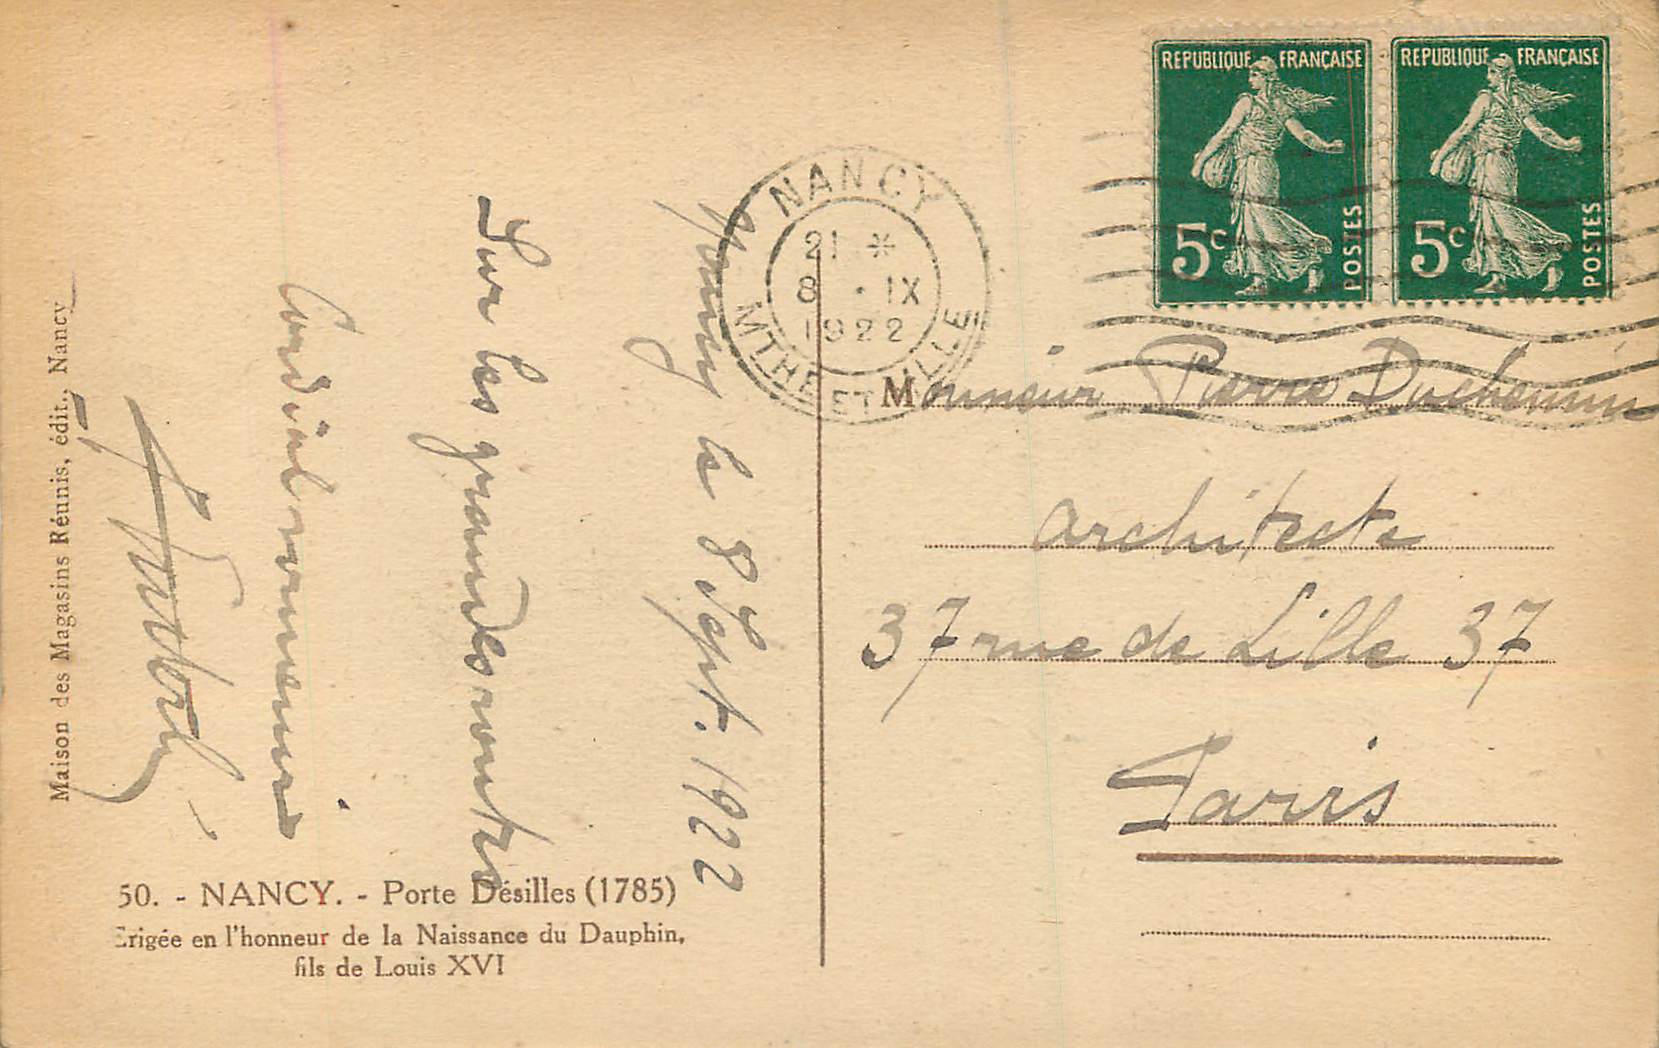 REPUBLIQUE FRANÇAISE
5c POSTES
REPUBLIQUE FRANÇAISE
5c POSTES
NANCY
21 *
8 . IX
1922
MTHE ET LLE
Nancy le 8 Sept. 1922
Sur les grandes routes
Cordial souvenir
Monsieur Pierre Duchemin
architecte
37 rue de Lille 37
Paris
50. - NANCY. - Porte Désilles (1785)
Erigée en l'honneur de la Naissance du Dauphin,
fils de Louis XVI
Maison des Magasins Réunis, édit., Nancy